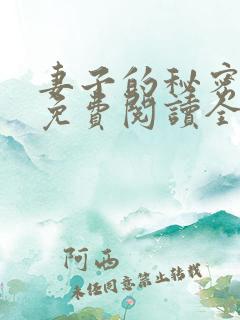 妻子的秘密
免費閱讀全
阿西
未经同意禁止转载